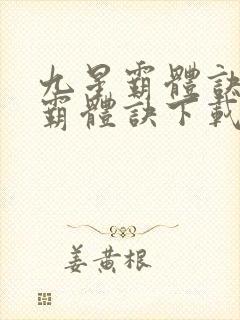 九星霸體訣
霸體訣下載
姜黄根